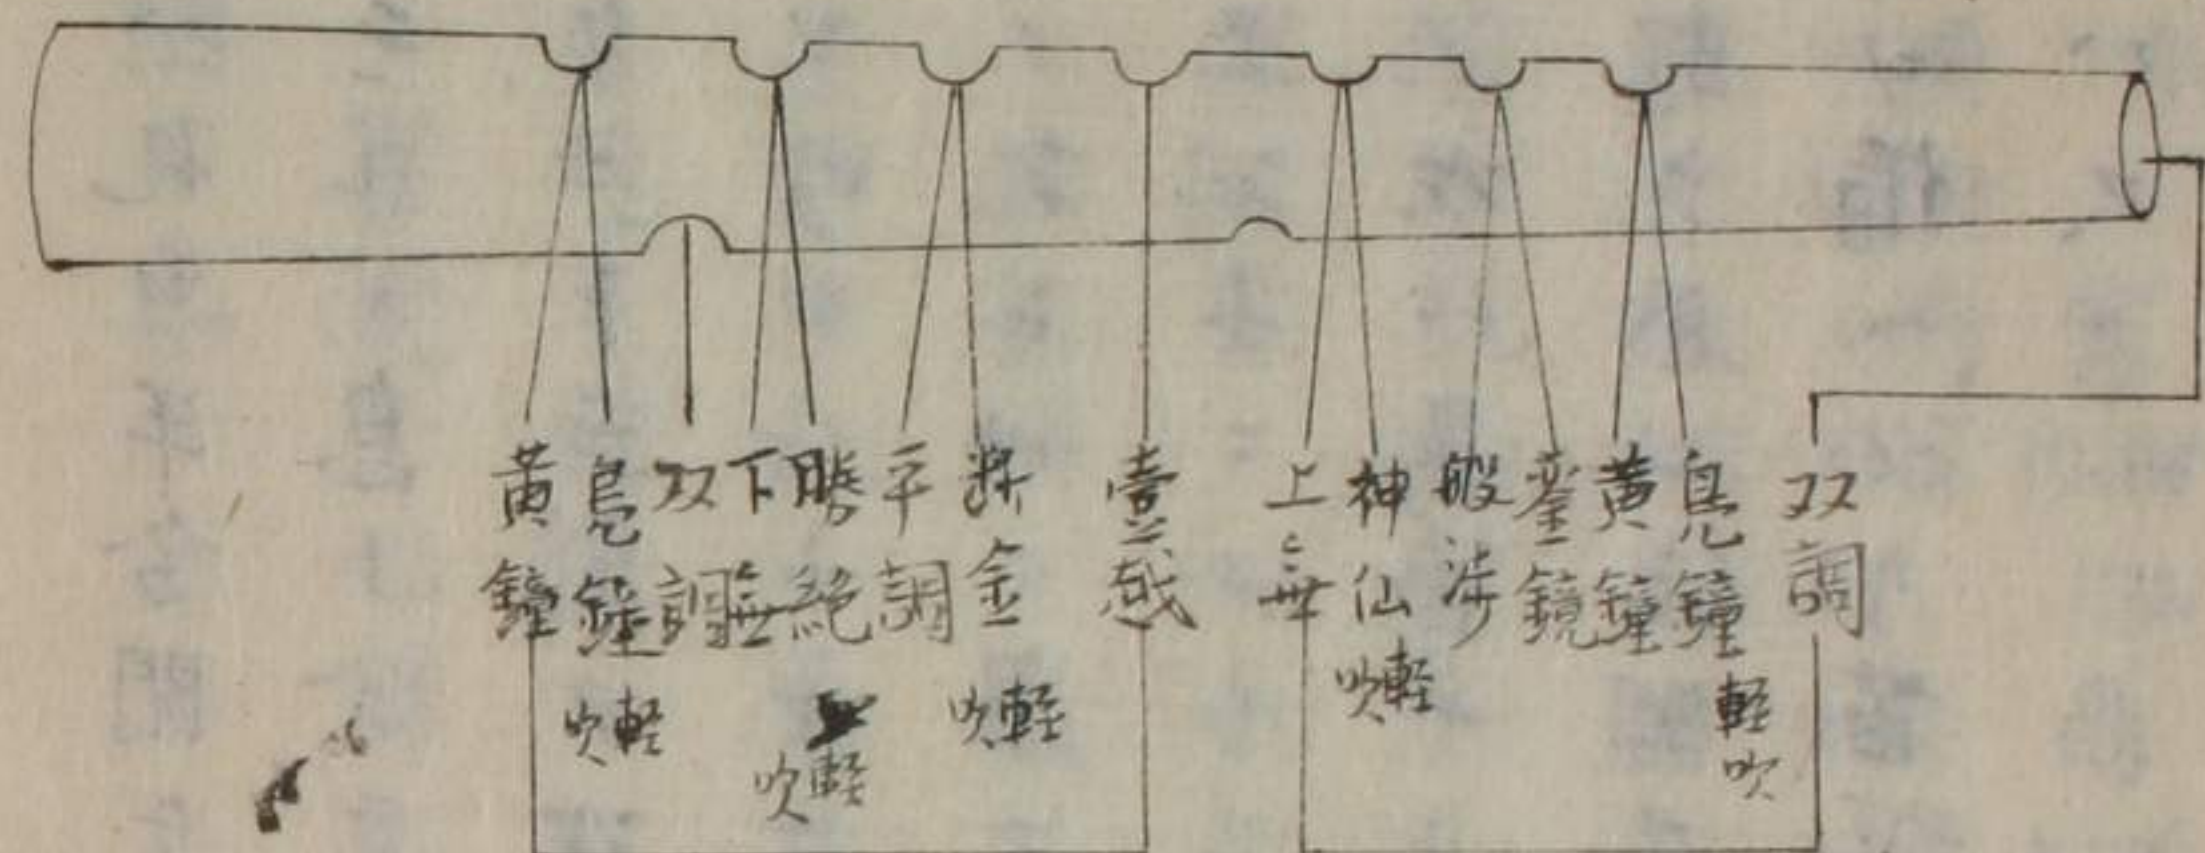 双調
鳧鐘 軽吹
黄鐘
銮鏡
般渉
神仙 軽吹
上無
壹越
断金 軽吹
平調
勝絶 軽吹
下無
双調
鳧鐘 軽吹
黄鐘